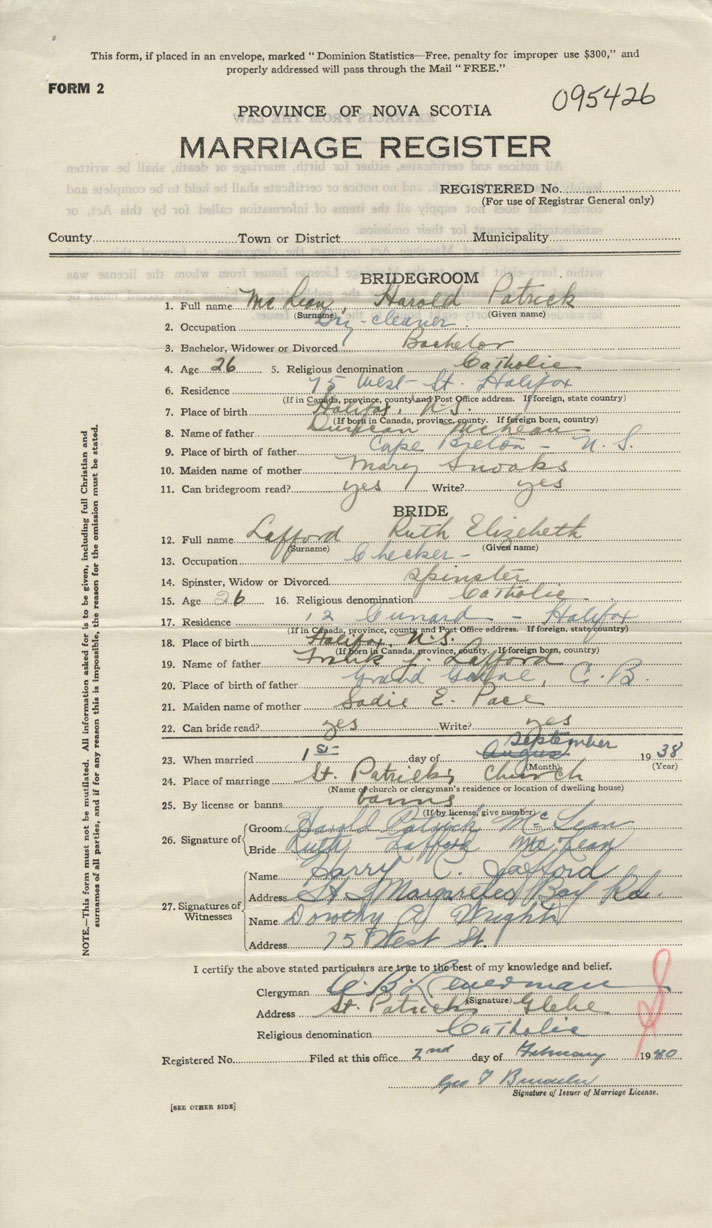 This form, if placed in an envelope, marked "Dominion Statistics—Free, penalty for improper use $300," and
properly addressed will pass through the Mail "FREE."
FORM 2
095426
PROVINCE OF NOVA SCOTIA
MARRIAGE REGISTER
REGISTERED No.
(For use of Registrar General only)
County Town or District Municipality
BRIDEGROOM
1. Full name McLean, Harold Patrick
(Surname) (Given name)
2. Occupation Dry-cleaner
3. Bachelor, Widower or Divorced Bachelor
4. Age 26 5. Religious denomination Catholic
6. Residence 75 West St. Halifax
(If in Canada, province, county and Post Office address. If foreign, state country)
7. Place of birth Halifax, N.S.
(If born in Canada, province, county. If foreign born, country)
8. Name of father Duncan McLean
9. Place of birth of father Cape Breton - N.S.
10. Maiden name of mother Mary Snooks
11. Can bridegroom read? yes Write? yes
BRIDE
12. Full name Lafford Ruth Elizebeth
(Surname) (Given name)
13. Occupation Checker -
14. Spinster, Widow or Divorced Spinster
15. Age 26 16. Religious denomination Catholic
17. Residence 12 Cunard - Halifax
(If in Canada, province, county and Post Office address. If foreign, state country)
18. Place of birth Halifax, N.S.
(If born in Canada, province, county. If foreign born, country)
19. Name of father Frank J. Lafford
20. Place of birth of father Grand C.B.
21. Maiden name of mother Sadie E. Pace
22. Can bride read? yes Write? yes
23. When married 1st day of September 1938
(Month) (Year)
24. Place of marriage St. Patricks Church
(Name of church or clergyman's residence or location of dwelling house)
25. By license or banns banns
(If by license, give number)
26. Signature of
Groom Harold Patrick McLean
Bride Ruth Lafford McLean
27. Signatures of Witnesses
Name Harry C. Lafford
Address St. Margarets Bay Rd.
Name Dorothy A Wright
Address 75 West St.
I certify the above stated particulars are true to the best of my knowledge and belief.
Clergyman C. B.
(Signature)
Address St. Patricks Glebe
Religious denomination Catholic
Registered No. Filed at this office 2nd day of February 1940
Geo
Signature of Issuer of Marriage License.
[SEE OTHER SIDE]
NOTE.—This form must not be mutilated. All information asked for is to be given, including full Christian and
surnames of all parties, and if for any reason this is impossible, the reason for the omission must be stated.